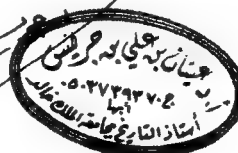 غيثان بن علي بن جريس
ج: ٠٥٠٣٧٣٩٣٧٠
أبها
أستاذ التاريخ بجامعة الملك خالد